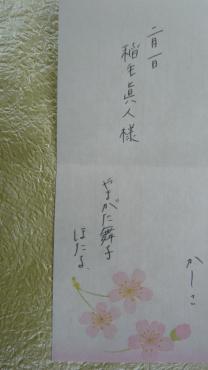 かしこ
二月一日
稲生眞人様
やまがた舞子
ほたる